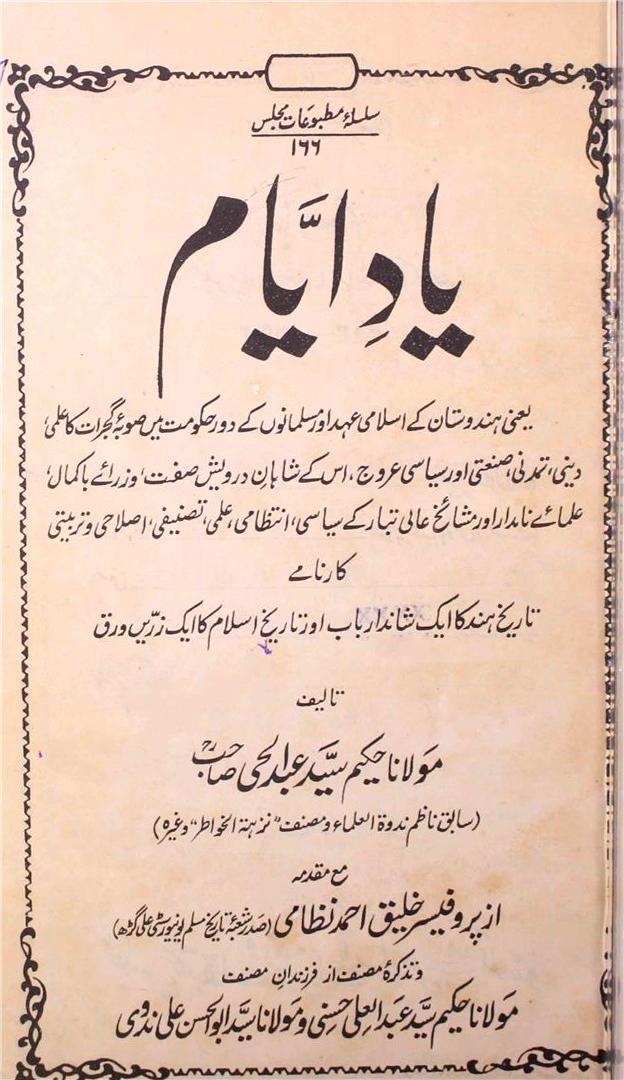 سلسلۂ مطبوعات مجلس
۱۶۶
یادِ ایّام
یعنی ہندوستان کے اسلامی عہد اور مسلمانوں کے دور حکومت میں صوبۂ گجرات کا علمی،
دینی، تمدنی، صنعتی اور سیاسی عروج، اس کے شاہانِ درویش صفت، وزرائے باکمال،
علمائے نامدار اور مشائخ عالی تبار کے سیاسی، انتظامی، علمی، تصنیفی، اصلاحی و تربیتی
کارنامے
تاریخ ہند کا ایک شاندار باب اور تاریخ اسلام کا ایک زرّیں ورق
تالیف
مولانا حکیم سیّد عبدالحی صاحبؒ
(سابق ناظم ندوۃ العلماء و مصنف "نزہۃ الخواطر" وغیرہ)
مع مقدمہ
از پروفیسر خلیق احمد نظامی (صدر شعبۂ تاریخ مسلم یونیورسٹی علی گڑھ)
و تذکرۂ مصنف از فرزندانِ مصنف
مولانا حکیم سیّد عبدالعلی حسنی و مولانا سیّد ابوالحسن علی ندوی